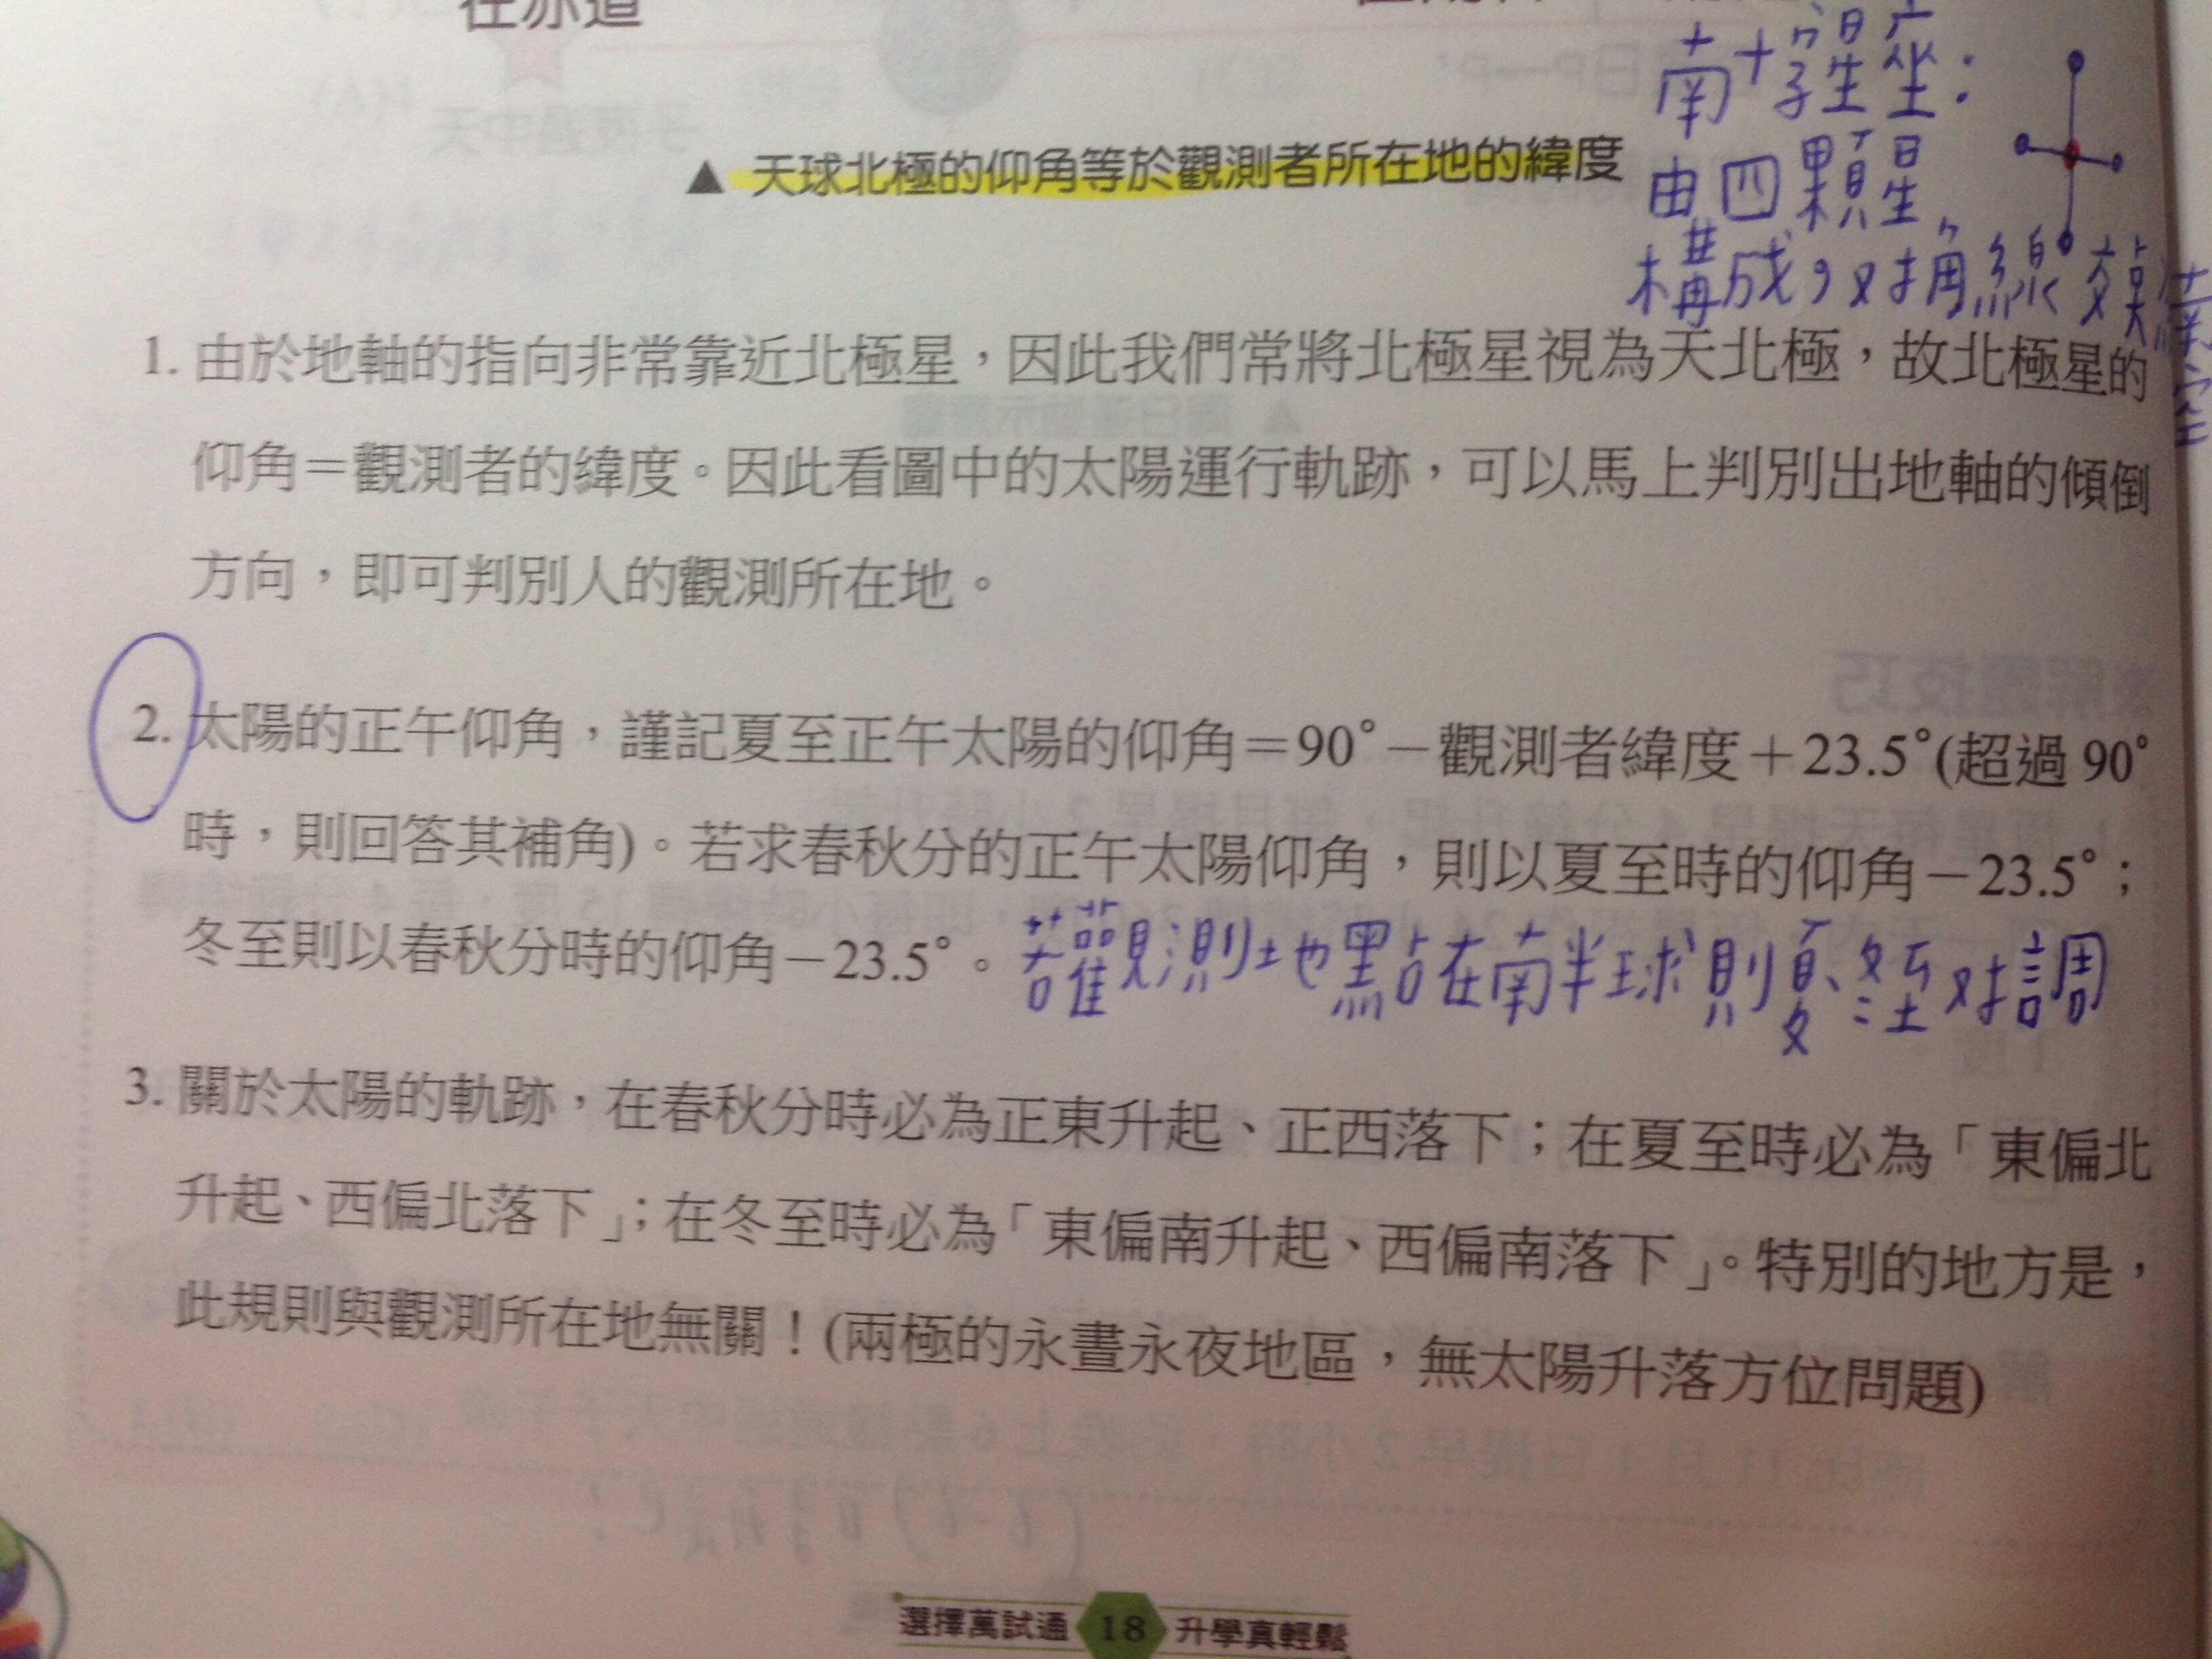 在赤道
南十字星座：
由四顆星
構成，对角線交
▲ 天球北極的仰角等於觀測者所在地的緯度
1. 由於地軸的指向非常靠近北極星，因此我們常將北極星視為天北極，故北極星的
仰角＝觀測者的緯度。因此看圖中的太陽運行軌跡，可以馬上判別出地軸的傾倒
方向，即可判別人的觀測所在地。
2. 太陽的正午仰角，謹記夏至正午太陽的仰角＝90°－觀測者緯度＋23.5°(超過 90°
時，則回答其補角)。若求春秋分的正午太陽仰角，則以夏至時的仰角－23.5°；
冬至則以春秋分時的仰角－23.5°。
若觀測地點在南半球則夏冬至对調
3. 關於太陽的軌跡，在春秋分時必為正東升起、正西落下；在夏至時必為「東偏北
升起、西偏北落下」；在冬至時必為「東偏南升起、西偏南落下」。特別的地方是，
此規則與觀測所在地無關！(兩極的永晝永夜地區，無太陽升落方位問題)
選擇萬試通 18 升學真輕鬆